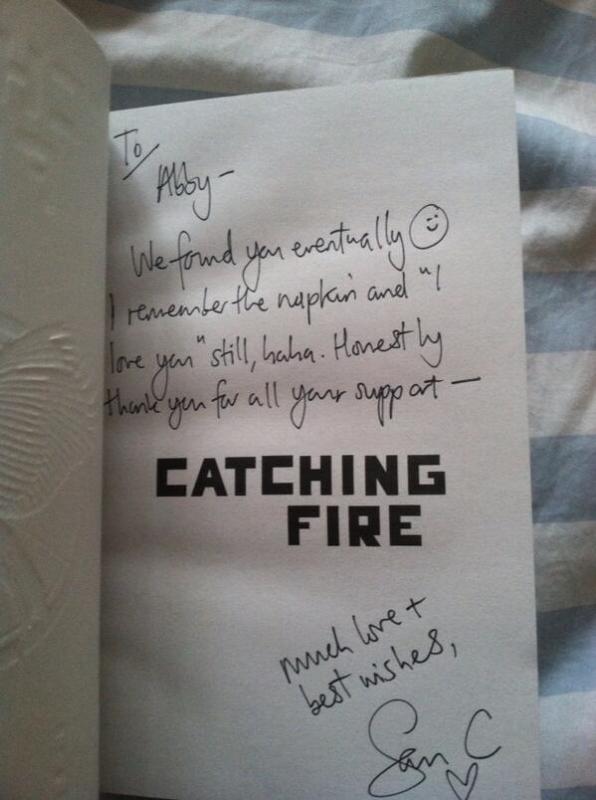 To
Abby –
We found you eventually
I remember the napkin and "I
love you" still, haha. Honestly
thank you for all your support —
CATCHING
FIRE
much love +
best wishes,
Sam C